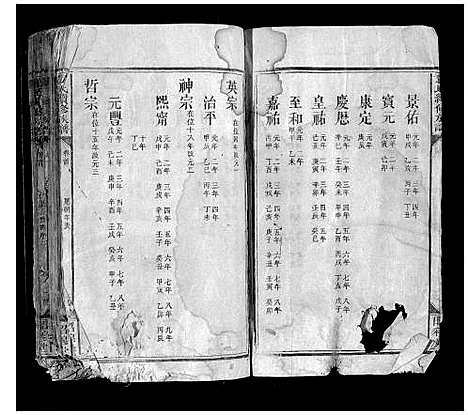 景佑 元年 二年 三年 四年
甲戌 乙亥 丙子 丁丑
寶元 元年 二年
戊寅 己卯
康定 元年
庚辰
慶曆 元年 二年 三年 四年 五年 六年 七年 八年
辛巳 壬午 癸未 甲申 乙酉 丙戌 丁亥 戊子
皇祐 元年 二年 三年 四年 五年
己丑 庚寅 辛卯 壬辰 癸巳
至和 元年 二年
甲午 乙未
嘉祐 元年 二年 三年 四年 五年 六年 七年 八年
丙申 丁酉 戊戌 己亥 庚子 辛丑 壬寅 癸卯
英宗 在位四年改元一
治平 元年 二年 三年 四年
甲辰 乙巳 丙午 丁未
神宗 在位十八年改元二
熙甯 元年 二年 三年 四年 五年 六年 七年 八年 九年
戊申 己酉 庚戌 辛亥 壬子 癸丑 甲寅 乙卯 丙辰
十年
丁巳
元豐 元年 二年 三年 四年 五年 六年 七年 八年
戊午 己未 庚申 辛酉 壬戌 癸亥 甲子 乙丑
哲宗 在位十五年改元三
氏續修族譜
卷首